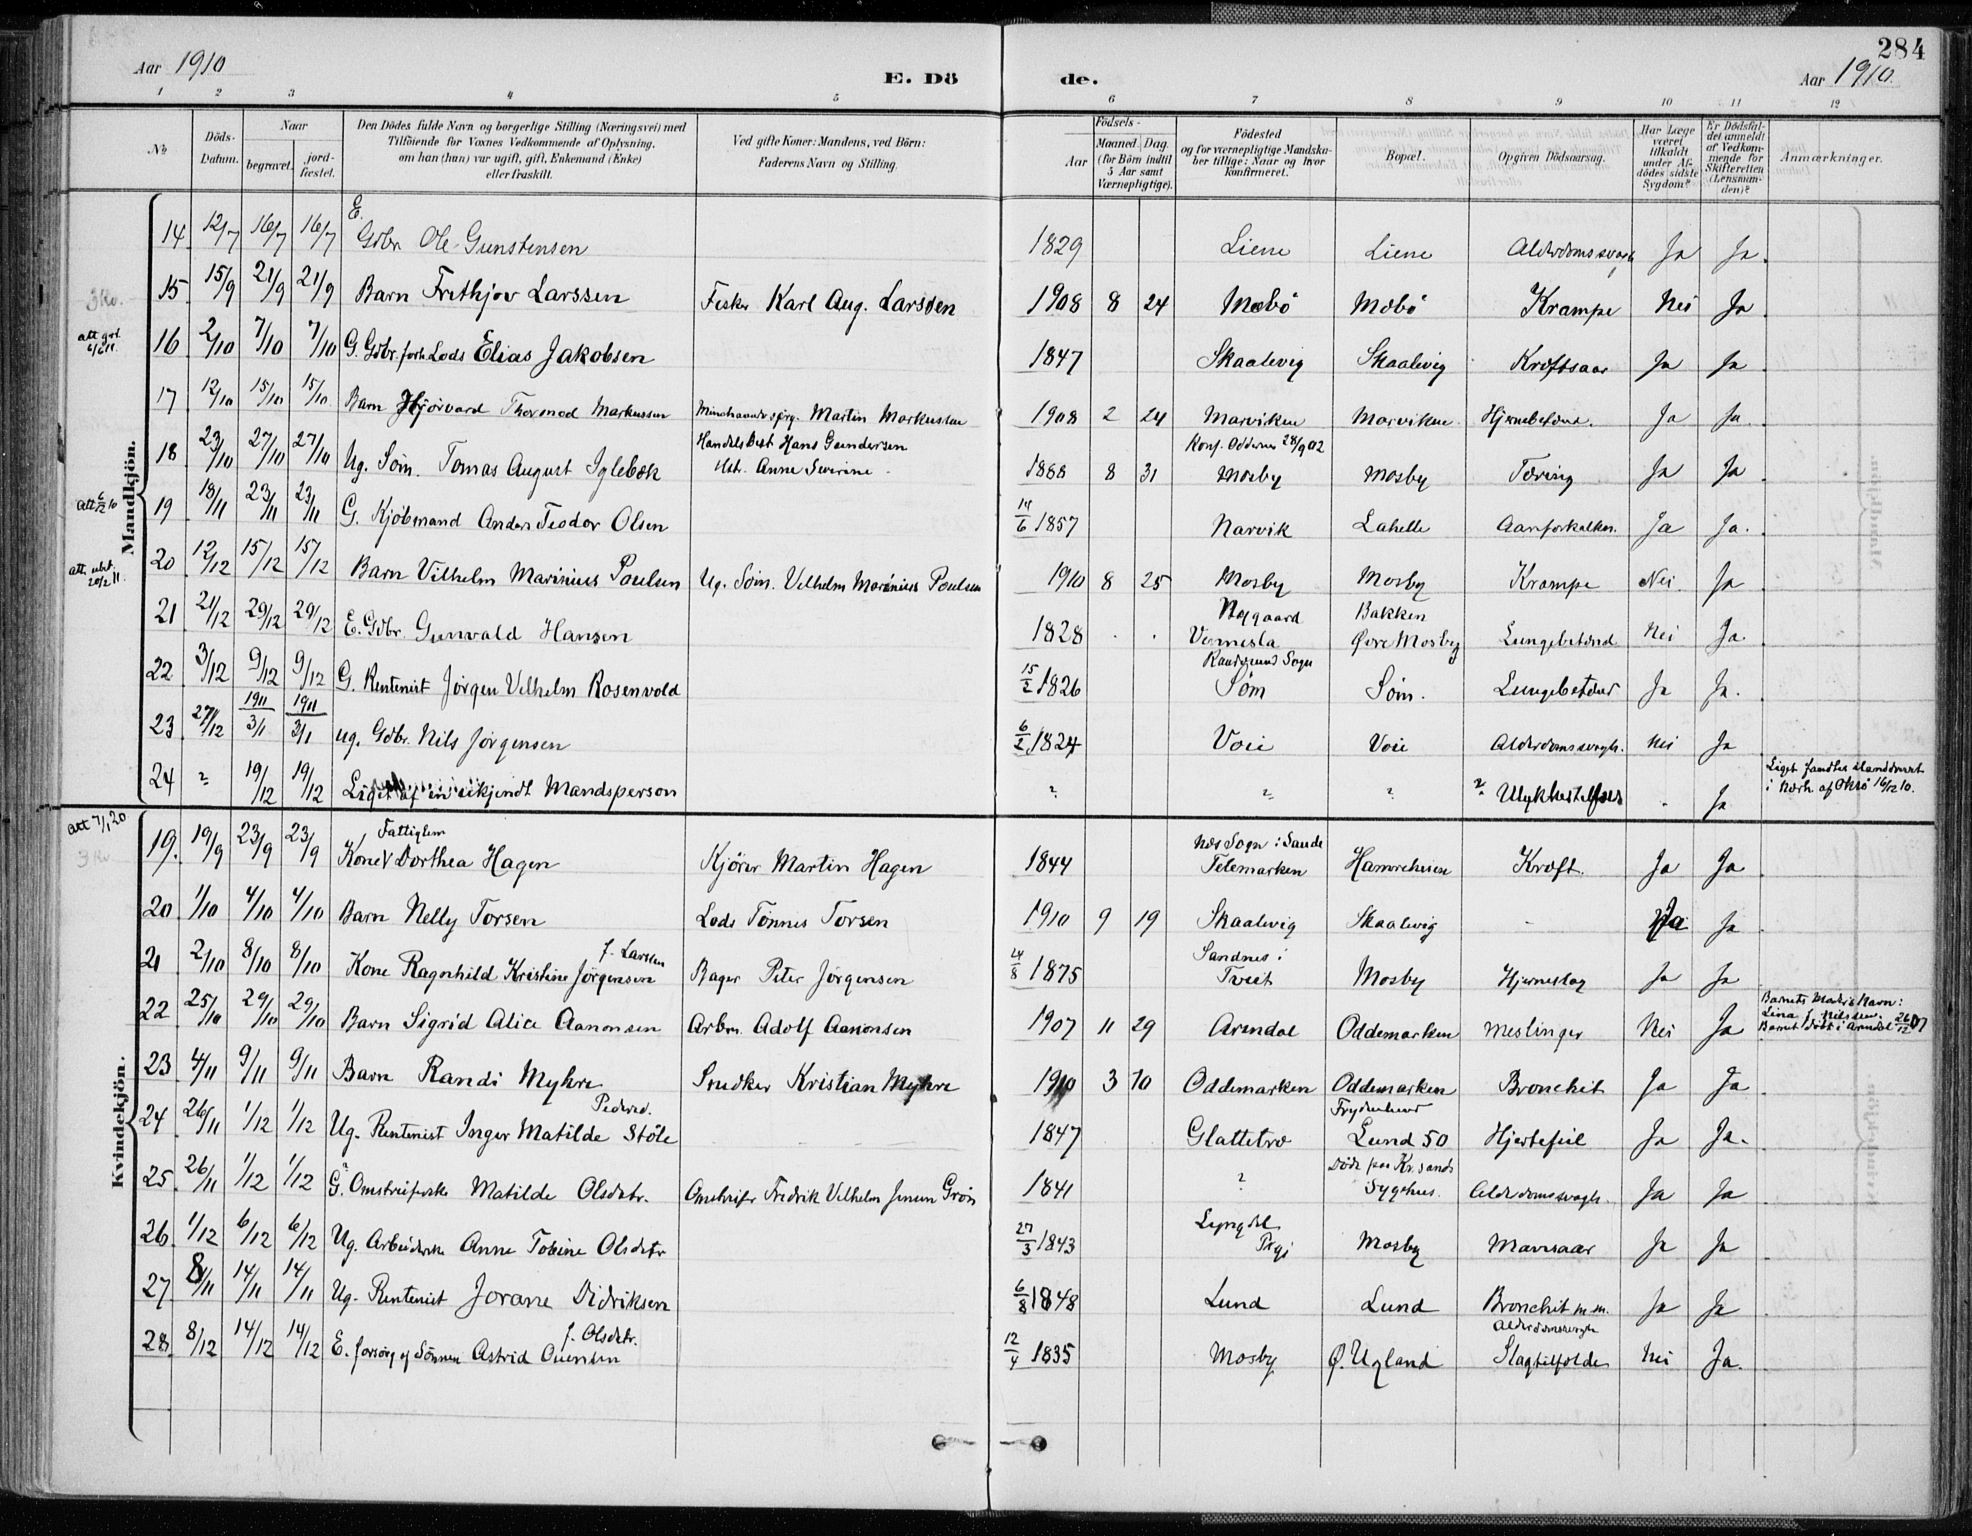 284
Aar 1910
E. Dö de.
Aar 1910.
1 2 3 4 5 6 7 8 9 10 11 12
No
Döds-Datum.
Naar
begravet.
jord-fæstet.
Den Dödes fulde Navn og borgerlige Stilling (Næringsvei) med
Tilföiende for Voxnes Vedkommende af Oplysning,
om han (hun) var ugift, gift, Enkemand (Enke)
eller fraskilt.
Ved gifte Koner: Mandens, ved Börn:
Faderens Navn og Stilling.
Födsels-
Aar
Maaned. Dag.
(for Börn indtil
5 Aar samt
Værnepligtige).
Födested
og for værnepligtige Mandska-
ber tillige: Naar og hvor
konfirmeret.
Bopæl.
Opgiven Dödsaarsag.
Har Læge
været
tilkaldt
under Af-
dödes sidste
Sygdom?
Er Dödsfal-
det anmeldt
af Vedkom-
mende for
Skifteretten
(Lensman-
den)?
Anmærkninger.
Mandkjön.
14 12/7 16/7 16/7 E. Gdbr. Ole Gunstensen 1829 Liene Liene Alderdomssvagh Ja Ja.
3 Kr.
15. 15/9 21/9 21/9 Barn Frithjov Larssen Fisker Karl Aug. Larssen 1908 8 24 Mæbö Mæbö Krampe Nei Ja
16 2/10 7/10 7/10 G. Gdbr. forh. Lods Elias Jakobsen 1847 Skaalevig Skaalevig Kræftsaar Ja Ja
17 12/10 15/10 15/10 Barn Hjörvard Thormod Markussen Martin Markussen 1908 2 24 Marviken Marviken Hjernebetænd. Ja Ja.
18 23/10 27/10 27/10 Ug. Söm. Tomas August Iglebæk Handelsbest Hans Gundersen
Hst. Anne Severine 1888 8 31 Konf. Oddernes 28/9 02
Mosby Mosby Tæring Ja Ja
19 18/11 23/11 23/11 G. Kjöbmand Anders Teodor Olsen 14/6 1857 Narvik Lahelle Aareforkalkn. Ja Ja.
20 12/12 15/12 15/12 Barn Vilhelm Marinius Poulsen Ug. Söm. Vilhelm Marinius Poulsen 1910 8 25 Mosby Mosby Krampe Nei. Ja
21 21/12 29/12 29/12 E. Gdbr. Gunvald Hansen 1828 . . Nygaard
Vennesla Bakken
Øvre Mosby Lungebetænd Nei Ja.
22 3/12 9/12 9/12 G. Rentenist Jörgen Vilhelm Rosenvold 15/2 1826 Randesund Sogn
Söm Söm. Lungebetænd Ja Ja.
23 27/12 1911 3/1 1911 3/1 ug. Gdbr. Nils Jörgensen 6/2 1824 Voie Voie Alderdomssvagh. Nei Ja
24 ? 19/12 19/12 Liget af en ukjendt Mandsperson ? ? ? ? Ulykkestilfælde - Ja Liget fandtes ilanddrevet
i Nærh. af Oksö 16/12 10.
Att 7/1 20
3 Kr
Kvindekjön.
19. 19/9 23/9 23/9 Fattiglem
Kone Dorthea Hagen Kjörer Martin Hagen 1844 Næs Sogn i Saude
Telemarken Hamrehusen Kræft. Ja Ja
20 1/10 4/10 4/10 Barn Nelly Torsen Lods Tönnes Torsen 1910 9 19 Skaalevig Skaalevig - Ja Ja
21 2/10 8/10 8/10 Kone Ragnhild Kristine Jörgensen f. Larsen Bager Peter Jörgensen 24/8 1875 Sandnes i
Tveit Mosby Hjerneslag Ja Ja
22 25/10 29/10 29/10 Barn Sigrid Alice Aanonsen Arbm. Adolf Aanonsen 1907 11 29 Arendal Oddemarken Meslinger Nei Ja Barnets Moders Navn:
Lina f. Nilssen.
Barnet döbt i Arendal 26/12 07
23 4/11 9/11 9/11 Barn Randi Myhre Snedker Kristian Myhre 1910 3 10 Oddemarken Oddemarken Bronchit Ja Ja
24 26/11 1/12 1/12 Ug. Rentenist Inger Matilde Pedersd. Stöle 1847 Glattetre Frydenlund
Lund 50 Hjertefeil Ja Ja.
25. 26/11 1/12 1/12 G. Matilde Olsdatr. Fredrik Vilhelm Jensen Grön 1841 ? Döde paa Kr.sands
Sygehus. Alderdomssvagh. Ja Ja
26 1/12 6/12 6/12 Ug. Arbeiderske Anne Tobine Olsdatr 27/3 1843 Lyngdal Mosby Mavesaar Ja Ja
27 8/11 14/11 14/11 Ug. Rentenist Jorane Didriksen 6/8 1848 Lund Lund Bronchit m.m. Ja Ja
28. 8/12 14/12 14/12 E. forsörg. af Sönnen Astrid f. Olsdatr. 12/4 1835 Mosby Ø. Ugland Alderdomssvagh
Slagtilfælde Nei Ja.